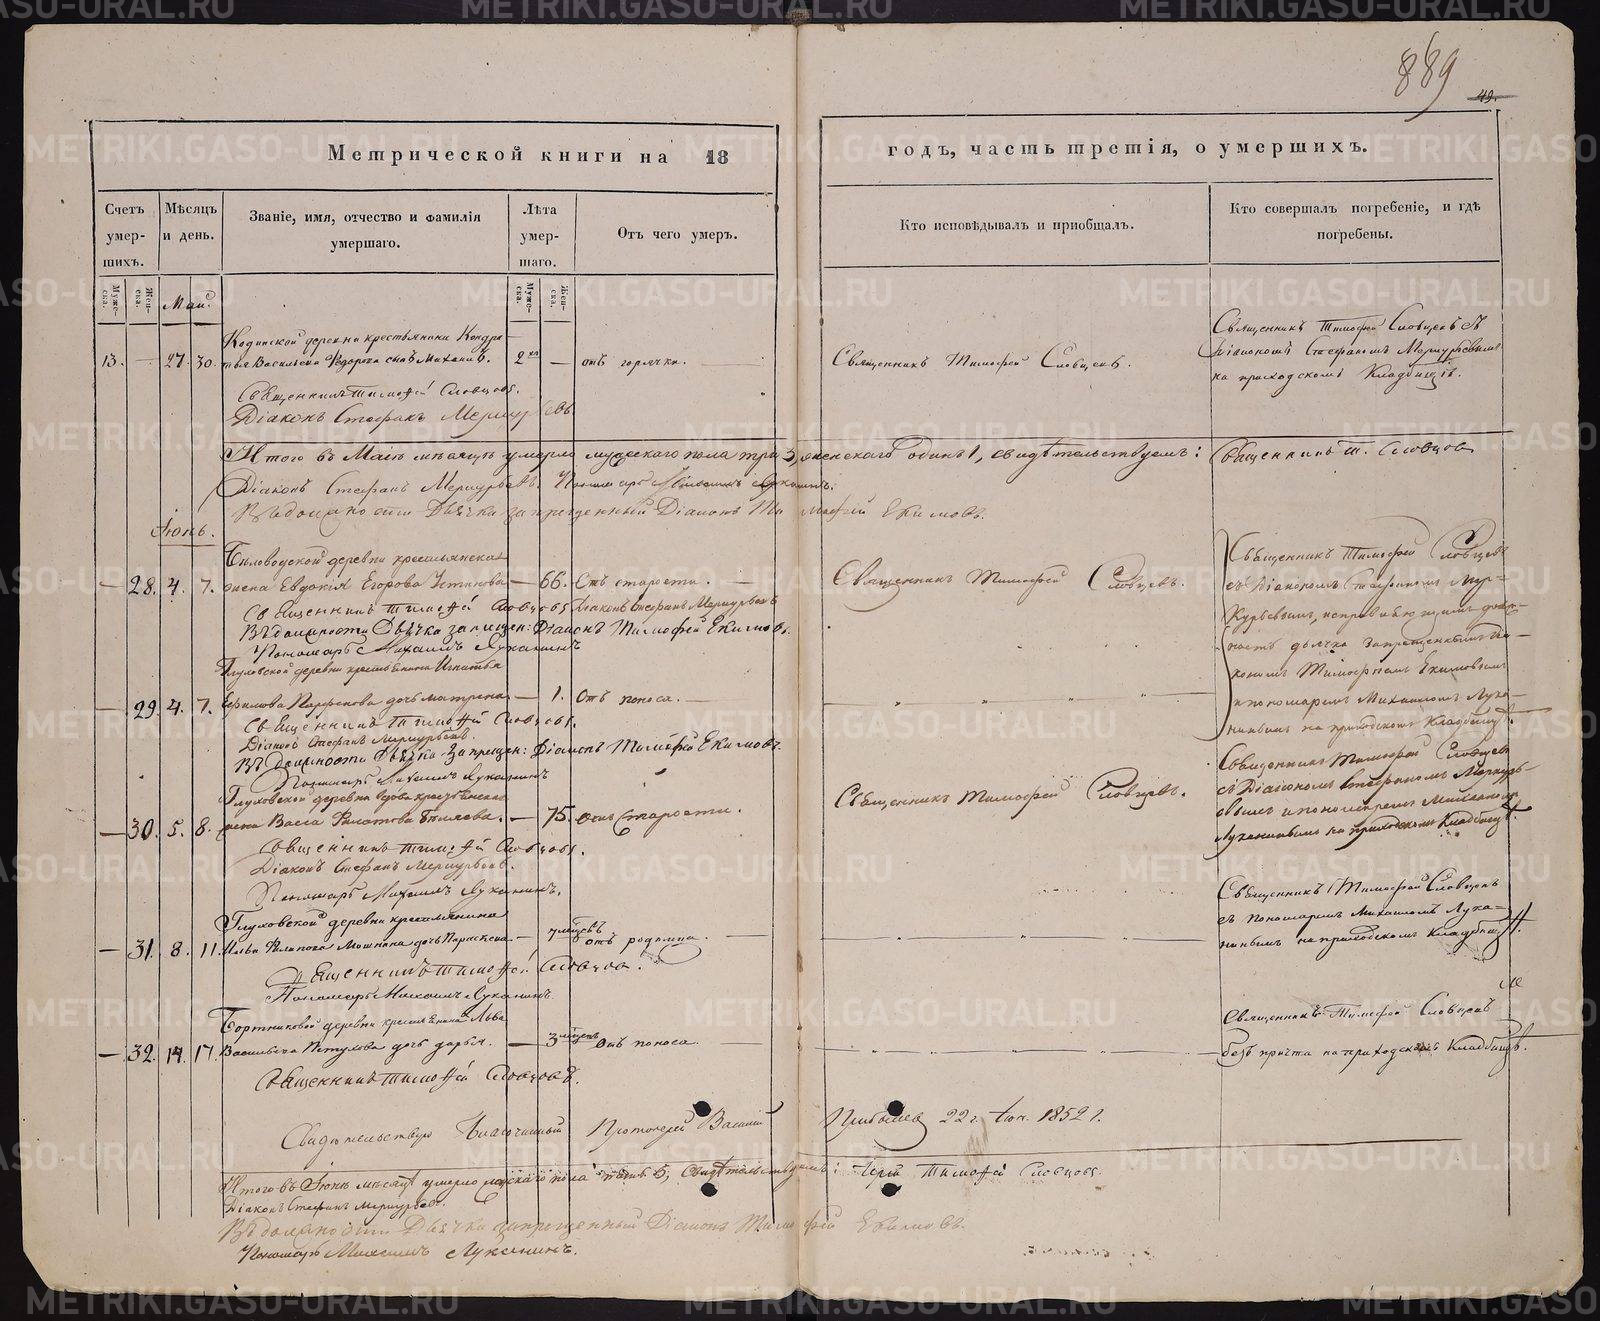 889
49.
Метрической книги на 18 годъ, часть третія, о умершихъ.
Счетъ умер-шихъ.
Мѣсяцъ и день.
Званіе, имя, отчество и фамилія умершаго.
Лѣта умер-шаго.
Отъ чего умеръ.
Кто исповѣдывалъ и пріобщалъ.
Кто совершалъ погребеніе, и гдѣ погребены.
Муже-ска.
Жен-ска.
Муже-ска.
Жен-ска.
деревни крестьянина
13. — 27. 30. Васильева сынъ Михаилъ. 2 — отъ горячки.
Священникъ Тимофей Словцовъ.
Священникъ Тимофей Словцовъ съ
Діакономъ Стефаномъ Меркурьевымъ
на приходскомъ Кладбищѣ.
Священникъ Тимофей Словцовъ.
Діаконъ Стефанъ Меркурьевъ.
Итого въ Маіѣ мѣсяцѣ умерло мужескаго пола три 3, женскаго одинъ 1, свидѣтельствуемъ: Священникъ Т. Словцовъ
Діаконъ Стефанъ Меркурьевъ. Пономарь Михаилъ Луканинъ.
Въ должности Дьячка запрещенный Діаконъ Тимофей Екимовъ.
Іюнь.
деревни крестьянская
— 28. 4. 7. жена Евдокія Егорова Устинова — 66. Отъ старости. —
Священникъ Тимофей Словцовъ.
Священникъ Тимофей Словцовъ
съ Діакономъ Стефаномъ Мер-
курьевымъ, исправляющимъ долж-
ность дьячка запрещеннымъ Діа-
кономъ Тимофеемъ Екимовымъ
и пономаремъ Михаиломъ Лука-
нинымъ на приходскомъ Кладбищѣ.
Священникъ Тимофей Словцовъ Діаконъ Стефанъ Меркурьевъ
Въ должности Дьячка запрещен: Діаконъ Тимофей Екимовъ.
Пономарь Михаилъ Луканинъ
Глуховской деревни крестьянина Игнатья
— 29. 4. 7. Ефимова Парфенова дочь Матрена — 1. Отъ поноса. —
Священникъ Тимофей Словцовъ.
Діаконъ Стефанъ Меркурьевъ.
Въ должности Дьячка Запрещен: Діаконъ Тимофей Екимовъ.
Пономарь Михаилъ Луканинъ
Глуховской деревни вдова крестьянская
— 30. 5. 8. жена Васса Филатова — 75. Отъ Старости.
Священникъ Тимофей Словцовъ.
Священникъ Тимофей Словцовъ
съ Діакономъ Стефаномъ Меркурь-
евымъ и пономаремъ Михаиломъ
Луканинымъ на приходскомъ Кладбищѣ.
Священникъ Тимофей Словцовъ.
Діаконъ Стефанъ Меркурьевъ.
Пономарь Михаилъ Луканинъ.
Глуховской деревни крестьянина
— 31. 8. 11. дочь Параскева — отъ родимца. —
Священникъ Тимофей Словцовъ
съ пономаремъ Михаиломъ Лука-
нинымъ на приходскомъ Кладбищѣ.
Священникъ Тимофей Словцовъ.
Пономарь Михаилъ Луканинъ.
Бортниковой деревни крестьянина Льва
— 32. 14. 17. Васильева Петухова дочь Дарья. — 3 мѣсяц. Отъ поноса. —
Священникъ Тимофей Словцовъ
безъ причта на приходскомъ Кладбищѣ.
Священникъ Тимофей Словцовъ.
Свидѣтельствую Благочинный Протоіерей Василій 22 г. Іюн. 1852 г.
Итого въ Іюнѣ мѣсяцѣ умерло женскаго пола пять 5, Свидѣтельствуемъ: Іерей Тимофей Словцовъ.
Діаконъ Стефанъ Меркурьевъ.
Въ должности Дьячка запрещенный Діаконъ Тимофей Екимовъ.
Пономарь Михаилъ Луканинъ.
METRIKI.GASO-URAL.RU